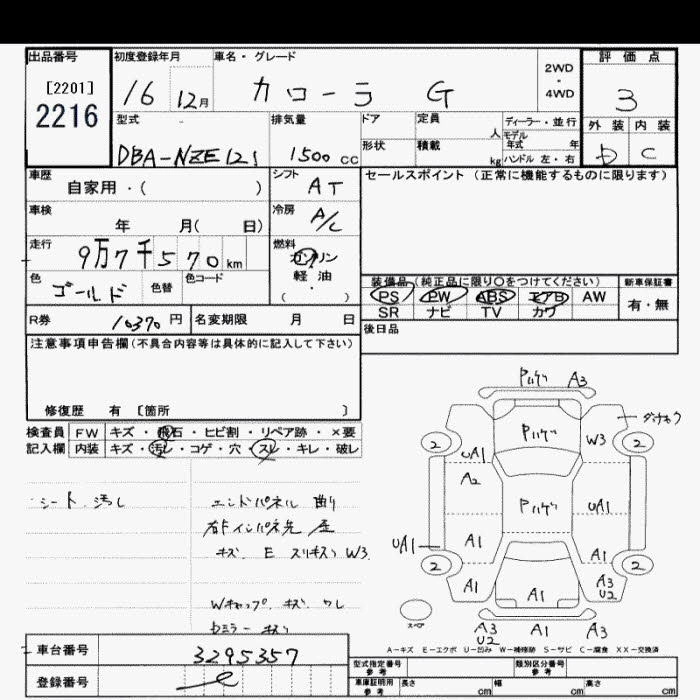 出品番号 初度登録年月 車名・グレード 評価点
[2201]
2216
16 12月 カローラ G 2WD・4WD 3
型式 排気量 ドア 定員 人 ディーラー・並行 外装 内装
モデル年式 年
DBA-NZE121 1500 CC 形状 積載 kg ハンドル 左・右 D C
車歴 自家用・( ) シフト AT セールスポイント (正常に機能するものに限ります)
車検 年 月( 日) 冷房 A/C
走行 9万7千570 km 燃料 ガソリン
軽油
・
( )
色 ゴールド 色替 色コード
装備品 (純正品に限り○をつけてください) 新車保証書
PS PW ABS エアB AW 有・無
SR ナビ TV カワ
R券 10370 円 名変期限 月 日 後日品
注意事項申告欄(不具合内容等は具体的に記入して下さい)
修復歴 有 [箇所 ]
検査員 FW キズ・飛石・ヒビ割・リペア跡・×要
記入欄 内装 キズ・汚レ・コゲ・穴・スレ・キレ・破レ
シート 汚レ
エンドパネル 曲り
キズ E スリキズ W3
Wキャップ キズ ワレ
車台番号 3295357
登録番号
Pハゲ A3
Pハゲ
2 UA1 W3 2
A2
Pハゲ UA1
UA1 A1 A1
2 2
A1 A1 A3
U2
スペア
A3 A1 A3
U2
A-キズ E-エクボ U-凹み W-補修跡 S-サビ C-腐食 XX-交換済
型式指定番号 参考 類別区分番号 参考
車庫証明用 参考 長さ cm 幅 cm 高さ cm